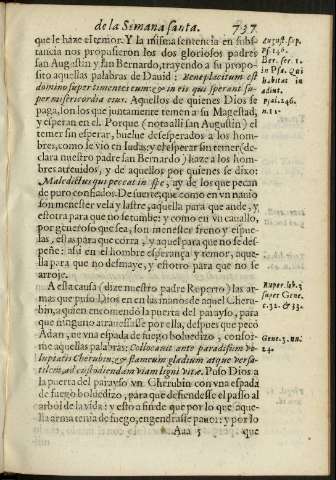 de la Semana santa. 737
que le haze el temor. Y la misma sentencia en subs-
tancia nos propusieron los dos gloriosos padres
san Augustin y san Bernardo, trayendo a su propo-
sito aquellas palabras de Dauid: Beneplacitum est
domino super timentes eum: & in eis qui sperant su-
per misericordia eius. Aquellos de quienes Dios se
paga, son los que juntamente temen a su Magestad,
y esperan en el. Porque (nota alli san Augustin) el
temer sin esperar, buelue desesperados a los hom-
bres, como se vio en Iudas: y el esperar sin temer (de-
clara nuestro padre san Bernardo) haze a los hombres
atreuidos, y de aquellos por quienes se dixo:
Maledictus qui peccat in spe, ay de los que pecan
de puro confiados. De suerte, que como en vn nauio
son menester vela y lastre, aquella para que ande, y
estotra para que no se tumbe: y como en vn cauallo,
por generoso que sea, son menester freno y espue-
las, estas para que corra, y aquel para que no se des-
peñe: assi en el hombre esperança y temor, aque-
lla para que no desmaye, y estotro para que no se
arroje.
A esta causa (dize nuestro padre Ruperto) las ar-
mas que puso Dios en en las manos de aquel Cheru-
bin, a quien encomendò la puerta del parayso, para
que ninguno atrauessasse por ella, despues que pecò
Adan, ne vna espada de fuego boluedizo, confor-
me aquellas palabras: Collocauit ante paradisum vo-
luptatis Cherubin: & flameum gladium atque versa-
tilem, ad custodiendam viam ligni vitæ. Puso Dios a
la puerta del parayso vn Cherubin con vna espada
de fuego boluedizo, para que defendiesse el passo al
arbol de la vida: y esto a fin de que por lo que aque-
lla arma tenia de fuego, engendrasse pauor: y por lo
Aaa 5 que
August. sup.
Ps. 146.
Ber. ser. 1.
in Psa. Qui
habitat in
adiut.
Psal. 146.
n. 11.
Ruper. lib. 3
super Gene.
c. 32. & 33.
Gene. 3. nu.
24.